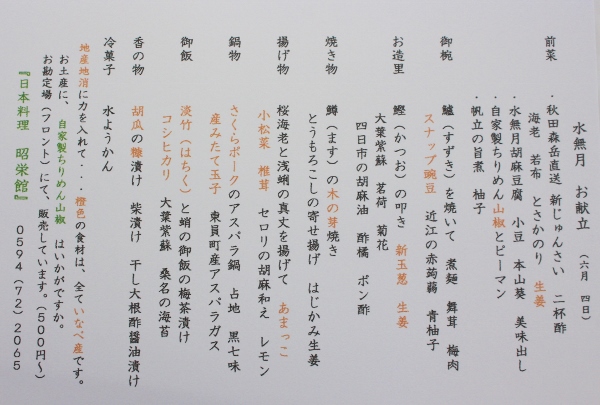 水無月 お献立 (六月 四日)
前菜 ・秋田森岳直送 新じゅんさい 二杯酢
海老 若布 とさかのり 生姜
・水無月胡麻豆腐 小豆 本山葵 美味出し
・自家製ちりめん山椒とピーマン
・帆立の旨煮 柚子
御椀 鱸(すずき)を焼いて 煮麺 舞茸 梅肉
スナップ豌豆 近江の赤蒟蒻 青柚子
お造里 鰹(かつお)の叩き 新玉葱 生姜
大葉紫蘇 茗荷 菊花
四日市の胡麻油 酢橘 ポン酢
焼き物 鱒(ます)の木の芽焼き
とうもろこしの寄せ揚げ はじかみ生姜
揚げ物 桜海老と浅蜊の真丈を揚げて あまっこ
小松菜 椎茸 セロリの胡麻和え レモン
鍋物 さくらポークのアスパラ鍋 占地 黒七味
産みたて玉子 東員町産アスパラガス
御飯 淡竹(はちく)と蛸の御飯の梅茶漬け
コシヒカリ 大葉紫蘇 桑名の海苔
香の物 胡瓜の糠漬け 柴漬け 干し大根酢醤油漬け
冷菓子 水ようかん
地産地消に力を入れて・・・橙色の食材は、全ていなべ産です。
お土産に、自家製ちりめん山椒 はいかがですか。
お勘定場(フロント)にて、販売しています。(500円~)
『日本料理 昭栄館』 0594(72)2065